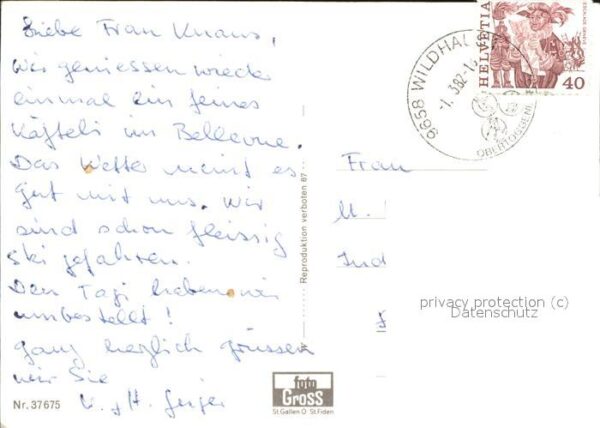 Liebe Frau Knaus,
Wir geniessen wieder
einmal ein feines
Käffeli im Bellevue.
Das Wetter meint es
gut mit uns. Wir
sind schon fleissig
Ski gefahren.
Den Tagi haben wir
umbestellt!
Ganz herzlich grüssen
wir Sie
Nr. 37675
Reproduktion verboten 87
foto
GROSS
St.Gallen O St.Fiden
9658 WILDHAUS
-1.3.82-1
OBERTOGGENB
HELVETIA
40
ESCALADE GENÈVE
Frau
M.
Ind
privacy protection (c)
Datenschutz